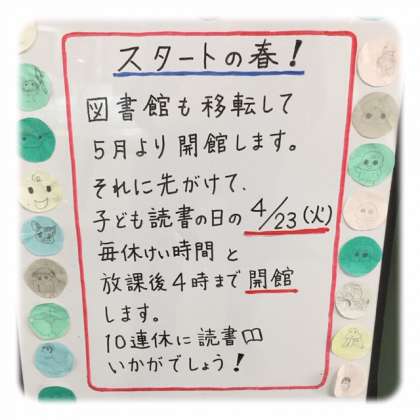 スタートの春！
図書館も移転して
5月より開館します。
それに先がけて、
子ども読書の日の4/23(火)
毎休けい時間と
放課後4時まで開館
します。
10連休に読書
いかがでしょう！